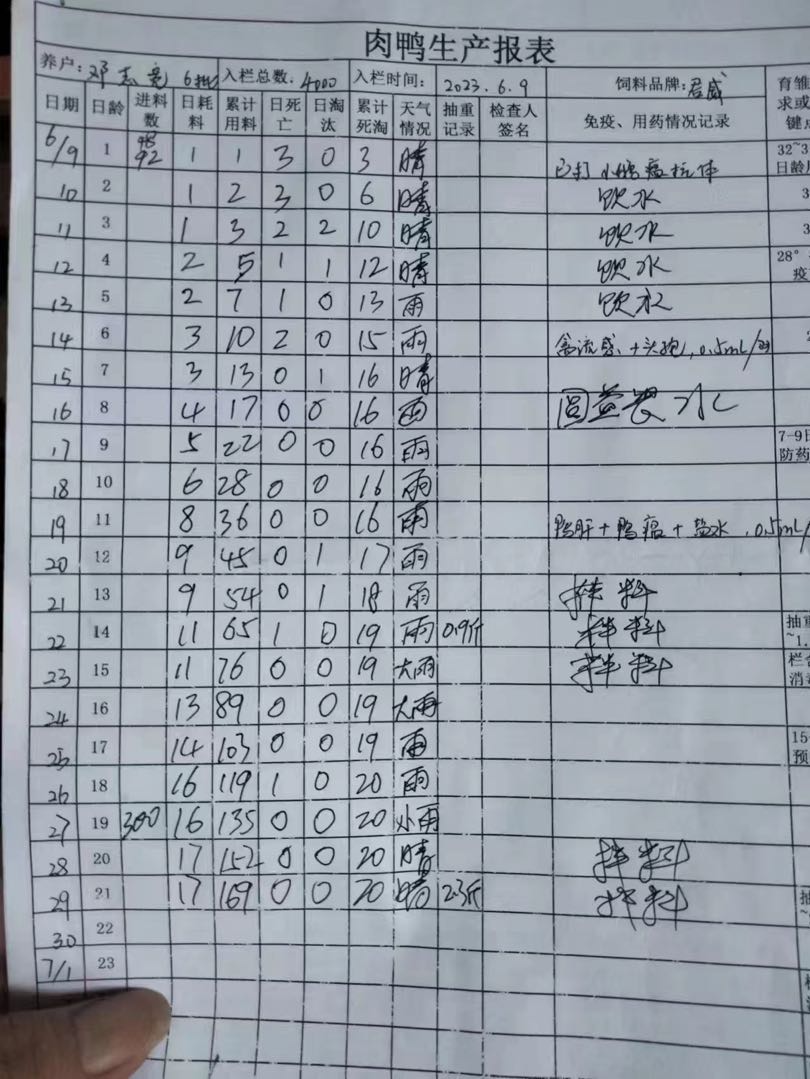 肉鸭生产报表
养户: 邓志亮 6批 入栏总数. 4000 入栏时间: 2023.6.9 饲料品牌: 君威 育雏
日期 日龄 进料数 日耗料 累计用料 日死亡 日淘汰 累计死淘 天气情况 抽重记录 检查人签名 免疫、用药情况记录 求或 键点
6/9 1 98 92 1 1 3 0 3 晴 已打小鹅瘟抗体 32~3 日龄
10 2 1 2 3 0 6 晴 饮水 3
11 3 1 3 2 2 10 晴 饮水 3
12 4 2 5 1 1 12 晴 饮水 28° 疫
13 5 2 7 1 0 13 雨 饮水
14 6 3 10 2 0 15 雨 禽流感、+头孢, 0.5mL/羽 2
15 7 3 13 0 1 16 晴
16 8 4 17 0 0 16 雨 水
17 9 5 22 0 0 16 雨 7-9日 防药
18 10 6 28 0 0 16 雨
19 11 8 36 0 0 16 雨 鸭肝+鸭瘟+盐水, 0.5mL/
20 12 9 45 0 1 17 雨
21 13 9 54 0 1 18 雨 拌料
22 14 11 65 1 0 19 雨 0.9斤 拌料 抽重 ~1.
23 15 11 76 0 0 19 大雨 拌料 栏舍 消毒
24 16 13 89 0 0 19 大雨
25 17 14 103 0 0 19 雨 15- 预
26 18 16 119 1 0 20 雨
27 19 300 16 135 0 0 20 小雨
28 20 17 152 0 0 20 晴 拌料
29 21 17 169 0 0 20 晴 2.3斤 拌料 抽 ~
30 22
7/1 23